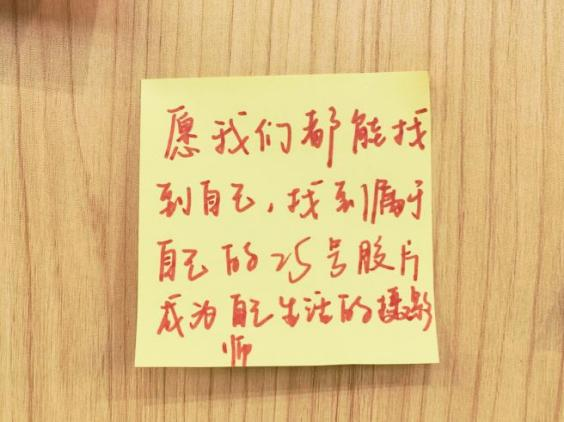 愿我们都能找
到自己，找到属于
自己的25号胶片
成为自己生活的摄影
师